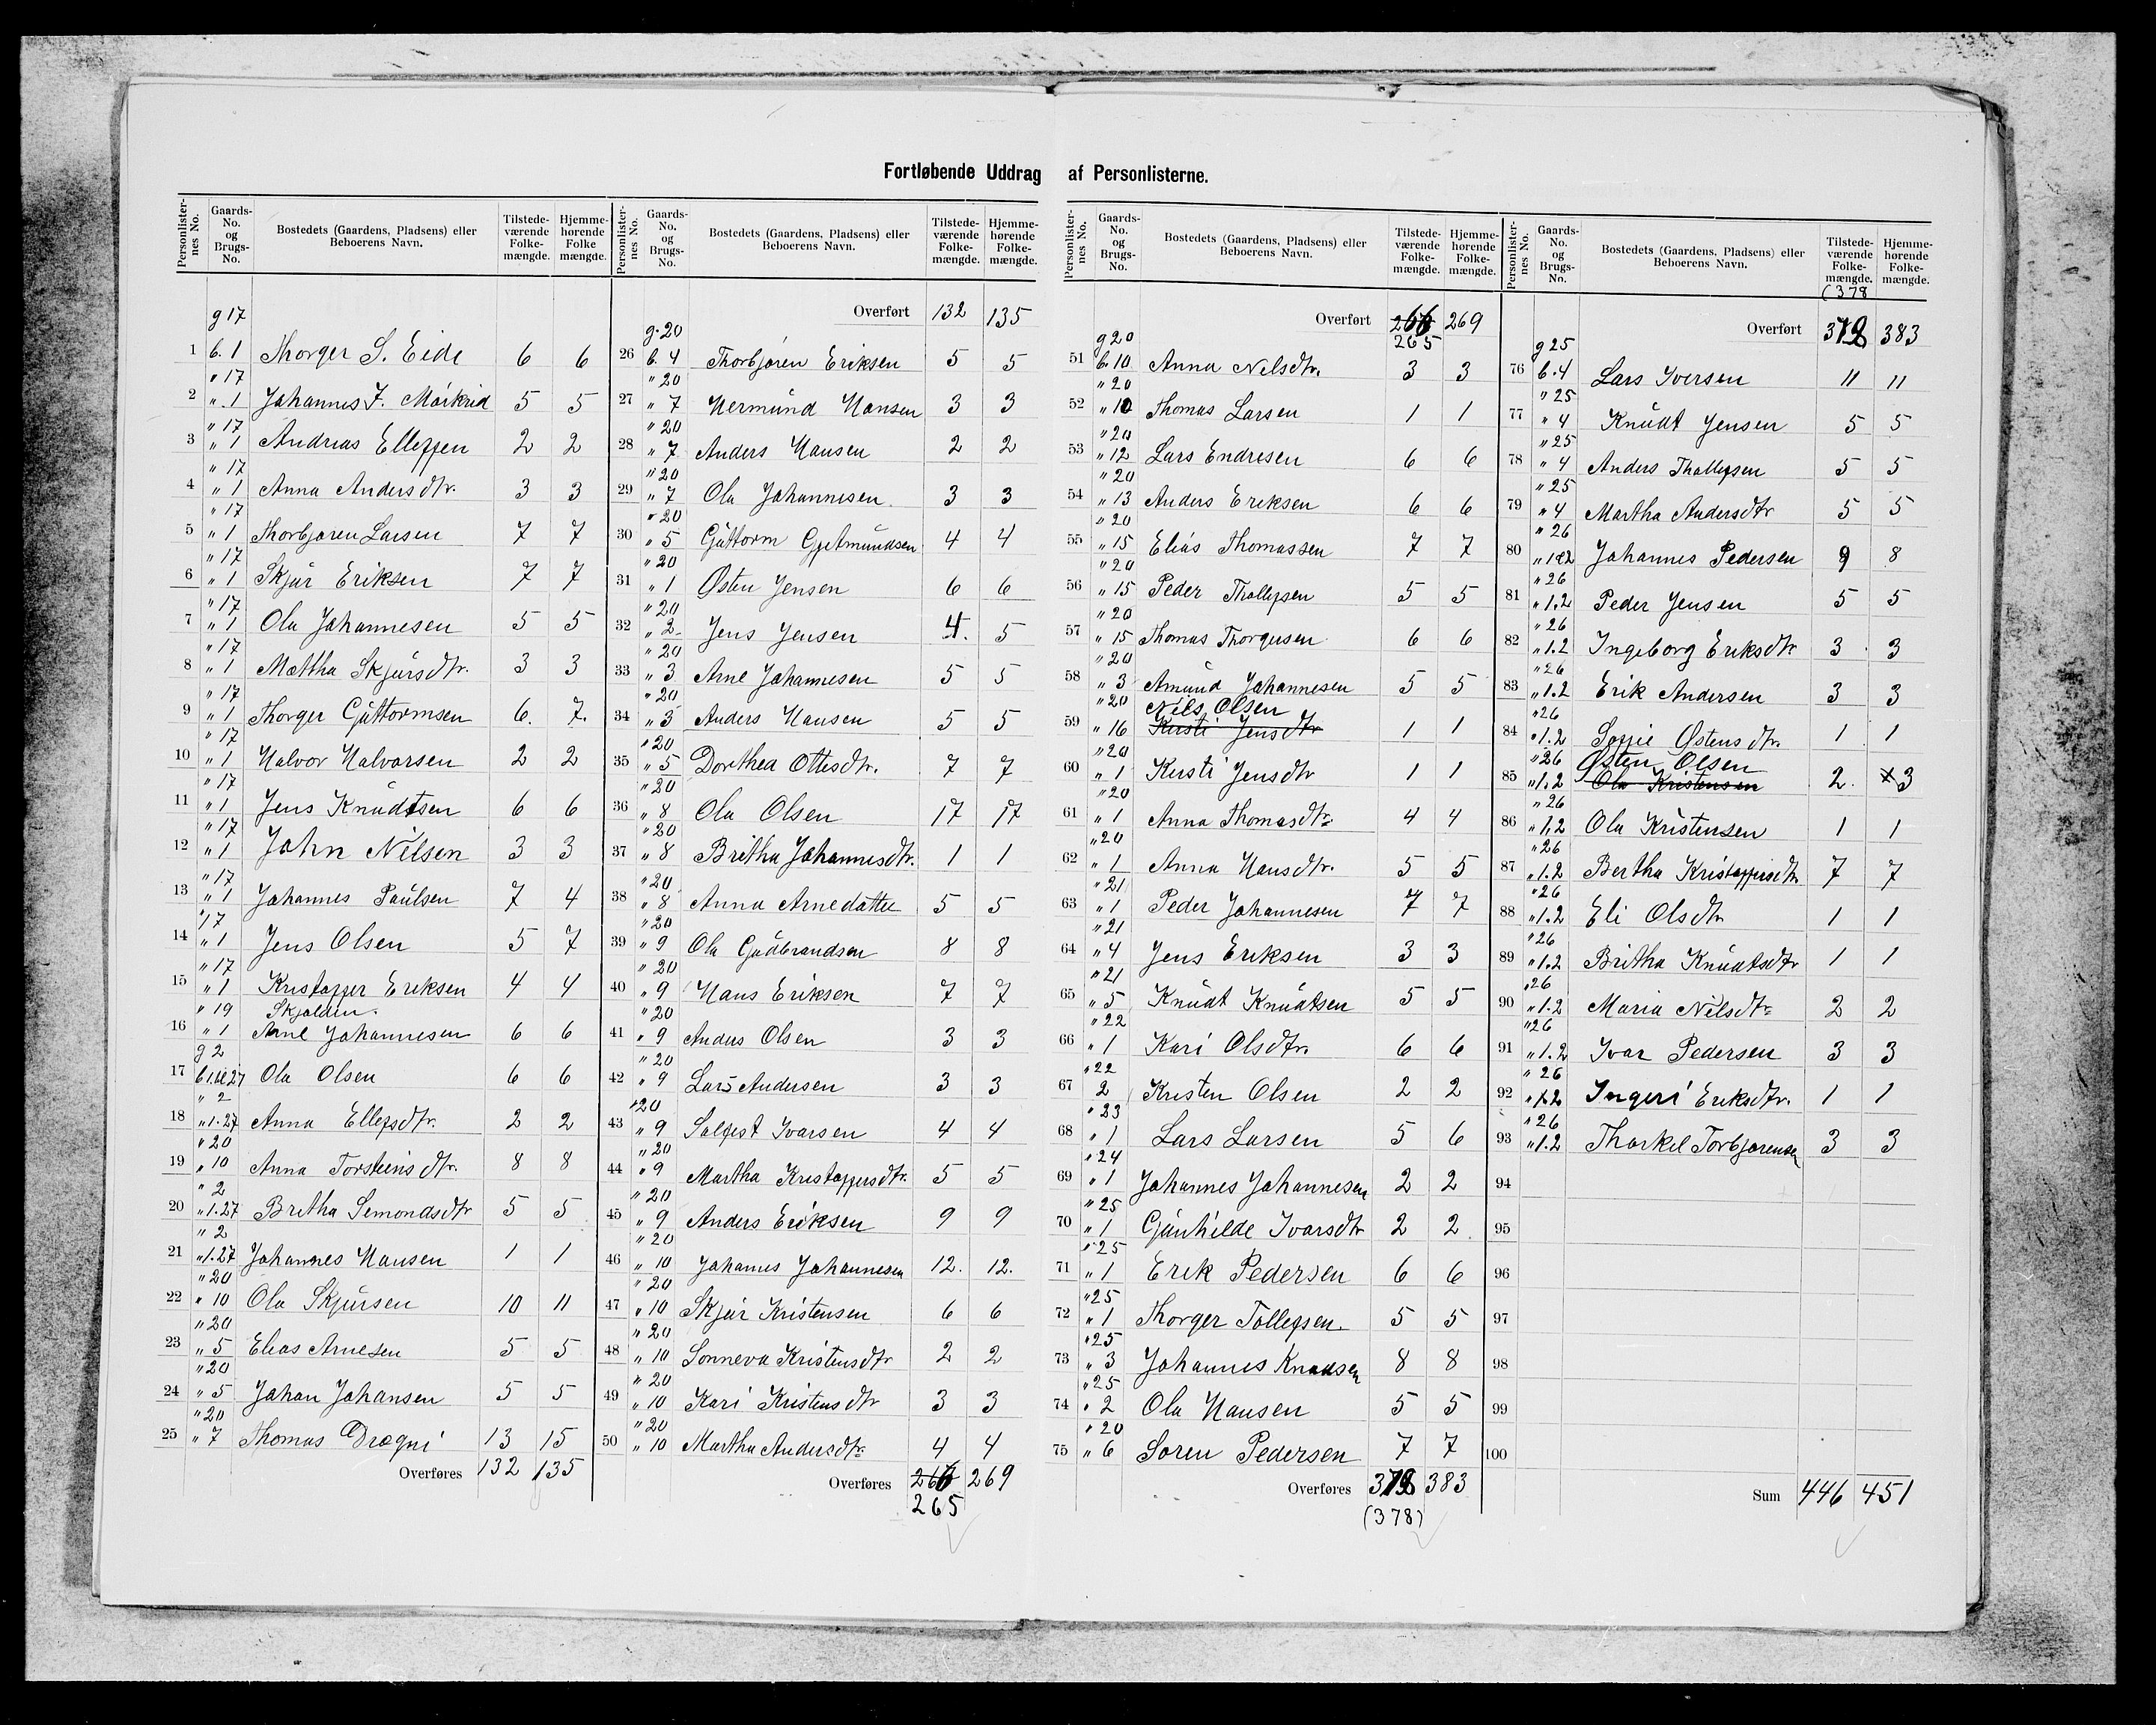 Fortløbende Uddrag af Personlisterne.
Personlister-nes No. Gaards-No. og Brugs-No. Bostedets (Gaardens, Pladsens) eller Beboerens Navn. Tilstede-værende Folke-mængde. Hjemme-hørende Folke mængde.
g 17
1 b. 1 Thorger S. Eide 6 6
" 17
2 " 1 Johannes J. Mørkrid 5 5
" 17
3 " 1 Andreas Ellefsen 2 2
" 17
4 " 1 Anna Andersdtr. 3 3
" 17
5 " 1 Thorbjøren Larsen 7 7
" 17
6 " 1 Skjur Eriksen 7 7
" 17
7 " 1 Ola Johannesen 5 5
" 17
8 " 1 Martha Skjursdtr. 3 3
" 17
9 " 1 Thorger Guttormsen 6. 7.
" 17
10 " 1 Halvor Halvorsen 2 2
" 17
11 " 1 Jens Knudtsen 6 6
" 17
12 " 1 John Nilsen 3 3
" 17
13 " 1 Johannes Paulsen 7 4
" 17
14 " 1 Jens Olsen 5 7
" 17
15 " 1 Kristoffer Eriksen 4 4
" 19 Skjolden.
16 " 1 Arne Johannesen 6 6
g 2
17 b 1 & 27 Ola Olsen 6 6
" 2
18 " 1.27 Anna Ellefsdtr. 2 2
" 20
19 " 10 Anna Torsteinsdtr. 8 8
" 2
20 " 1.27 Britha Semondsdtr 5 5
" 2
21 " 1.27 Johannes Hansen 1 1
" 20
22 " 10 Ola Skjursen 10 11
" 20
23 " 5 Elias Arnesen 5 5
" 20
24 " 5 Johan Johansen 5 5
" 20
25 " 7 Thomas Drægni 13 15
Overføres 132 135
Personlister-nes No. Gaards-No. og Brugs-No. Bostedets (Gaardens, Pladsens) eller Beboerens Navn. Tilstede-værende Folke-mængde. Hjemme-hørende Folke-mængde.
Overført 132 135
g. 20
26 b. 4 Thorbjøren Eriksen 5 5
" 20
27 " 7 Hermund Hansen 3 3
" 20
28 " 7 Anders Hansen 2 2
" 20
29 " 7 Ola Johannesen 3 3
" 20
30 " 5 Guttorm Gjetmundsen 4 4
" 20
31 " 1 Østen Jensen 6 6
" 20
32 " 2 Jens Jensen 4. 5
" 20
33 " 3 Arne Johannesen 5 5
" 20
34 " 3 Anders Hansen 5 5
" 20
35 " 5 Dorthea Ottesdtr. 7 7
" 20
36 " 8 Ola Olsen 17 17
" 20
37 " 8 Britha Johannesdtr. 1 1
" 20
38 " 8 Anna Arnedatter 5 5
" 20
39 " 9 Ola Gudbrandsen 8 8
" 20
40 " 9 Hans Eriksen 7 7
" 20
41 " 9 Anders Olsen 3 3
" 20
42 " 9 Lars Andersen 3 3
" 20
43 " 9 Salfest Ivarsen 4 4
" 20
44 " 9 Martha Kristoffersdtr. 5 5
" 20
45 " 9 Anders Eriksen 9 9
" 20
46 " 10 Johannes Johannesen 12. 12.
" 20
47 " 10 Skjur Kristensen 6 6
" 20
48 " 10 Sonneva Kristensdtr 2 2
" 20
49 " 10 Kari Kristensdtr 3 3
" 20
50 " 10 Martha Andersdtr. 4 4
Overføres 266 269
265
Personlister-nes No. Gaards-No. og Brugs-No. Bostedets (Gaardens, Pladsens) eller Beboerens Navn. Tilstede-værende Folke-mængde. Hjemme-hørende Folke-mængde.
Overført 266 269
g 20 265
51 b. 10 Anna Nilsdtr. 3 3
" 20
52 " 10 Thomas Larsen 1 1
" 20
53 " 12 Lars Endresen 6 6
" 20
54 " 13 Anders Eriksen 6 6
" 20
55 " 15 Elias Thomassen 7 7
" 20
56 " 15 Peder Thollefsen 5 5
" 20
57 " 15 Thomas Thorgersen 6 6
" 20
58 " 3 Amund Johannesen 5 5
" 20 Nils Olsen
59 " 16 Kersti Jensdtr 1 1
" 20
60 " 1 Kersti Jensdtr 1 1
" 20
61 " 1 Anna Thomasdtr. 4 4
" 20
62 " 1 Anna Hansdtr. 5 5
" 21
63 " 1 Peder Johannesen 7 7
" 21
64 " 4 Jens Eriksen 3 3
" 21
65 " 5 Knudt Knudtsen 5 5
" 22
66 " 1 Kari Olsdtr. 6 6
" 22
67 2 Kristen Olsen 2 2
" 23
68 " 1 Lars Larsen 5 6
" 24
69 " 1 Johannes Johannesen 2 2
" 25
70 " 1 Gunhilde Ivarsdtr 2 2
" 25
71 " 1 Erik Pedersen 6 6
" 25
72 " 1 Thorger Tollefsen. 5 5
" 25
73 " 3 Johannes Knudsen 8 8
" 25
74 " 2 Ola Hansen 5 5
" 20
75 " 6 Søren Pedersen 7 7
Overføres 383
(378)
Personlister-nes No. Gaards-No. og Brugs-No. Bostedets (Gaardens, Pladsens) eller Beboerens Navn. Tilstede-værende Folke-mængde. Hjemme-hørende Folke-mængde.
(378
Overført 383
g 25
76 b. 4 Lars Iversen 11 11
" 25
77 " 4 Knudt Jensen 5 5
" 25
78 " 4 Anders Thollefsen 5 5
" 25
79 " 4 Martha Andersdtr 5 5
" 26
80 " 1&2 Johannes Pedersen 9 8
" 26
81 " 1.2 Peder Jensen 5 5
" 26
82 " 1.2 Ingeborg Eriksdtr 3 3
" 26
83 " 1.2 Erik Andersen 3 3
" 26
84 " 1.2 Sofie Østensdtr. 1 1
" 26 Østen Olsen
85 " 1.2 Ola Kristensen 2. 3
" 26
86 " 1.2 Ola Kristensen 1 1
" 26
87 " 1.2 Bertha Kristoffersdtr. 7 7
" 26
88 " 1.2 Eli Olsdtr. 1 1
" 26
89 " 1.2 Britha Knudtsdtr 1 1
" 26
90 " 1.2 Maria Nilsdtr 2 2
" 26
91 " 1.2 Ivar Pedersen 3 3
" 26
92 " 1.2 Ingeri Eriksdtr. 1 1
" 26
93 " 1.2 Thorkel Torbjørensen 3 3
94
95
96
97
98
99
100
Sum 446 451